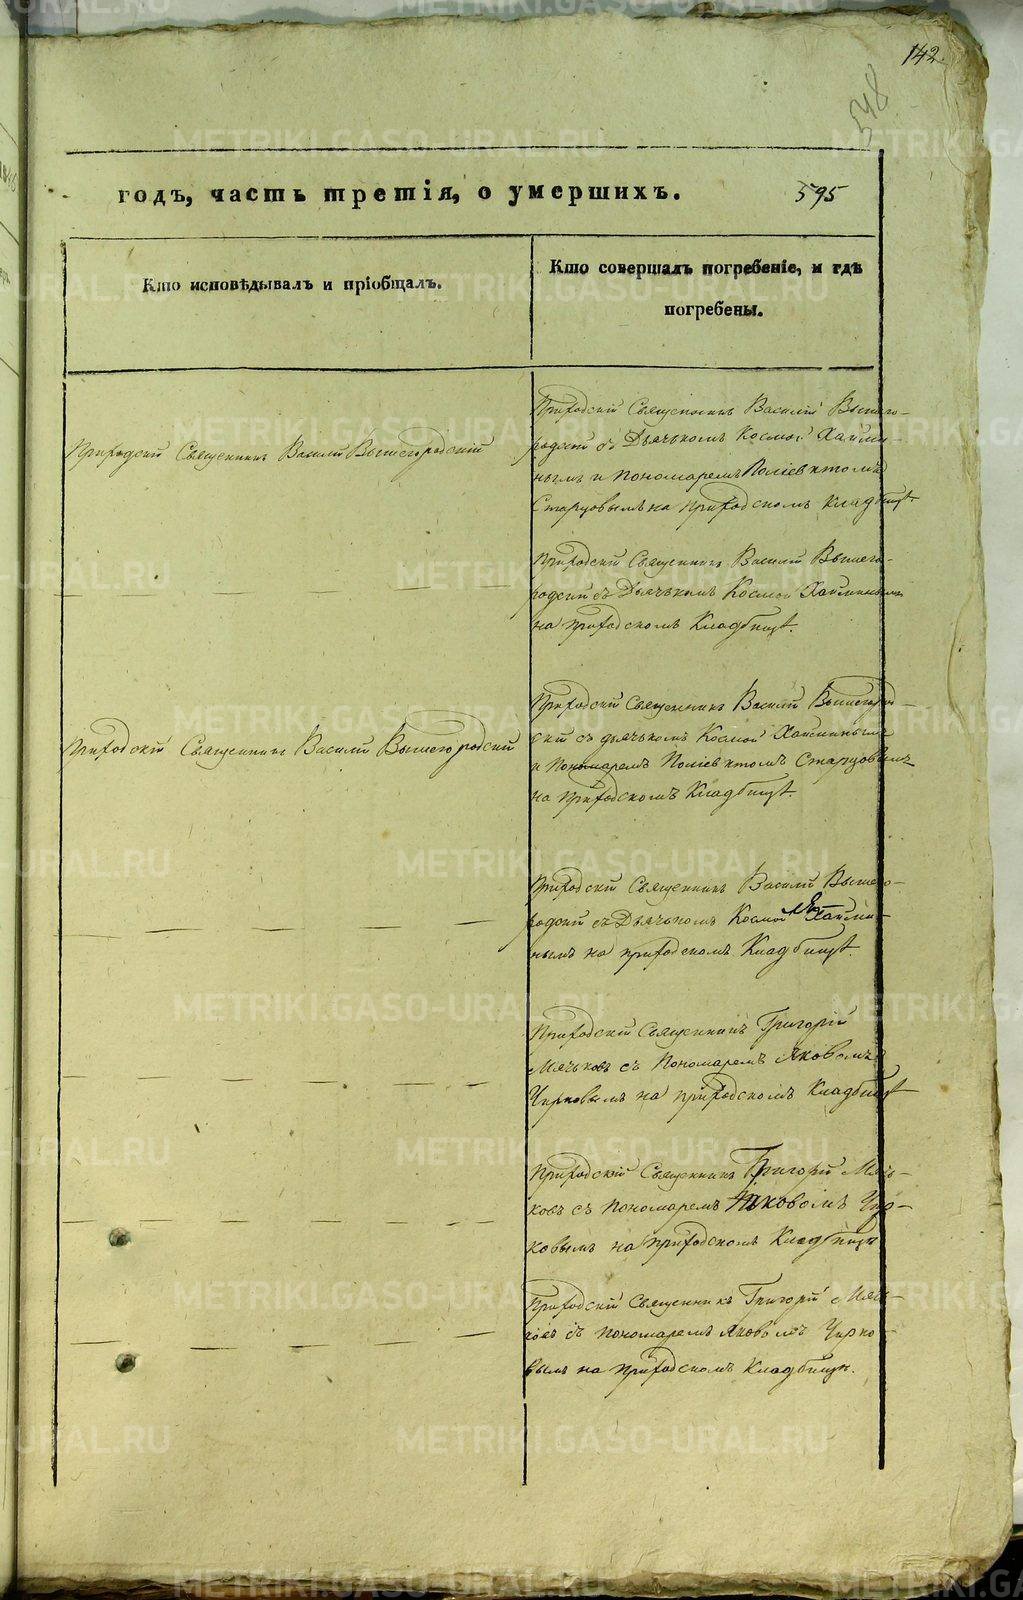 142.
548
годъ, часть третія, о умершихъ.
595
Кто исповѣдывалъ и пріобщалъ.
Кто совершалъ погребеніе, и гдѣ
погребены.
Приходскій Священникъ Василій Вышегородскій
Приходскій Священникъ Василій Вышего-
родскій съ Дьячькомъ Космой Хайми-
нымъ и Пономаремъ Поліевктомъ
Старцовымъ на приходскомъ кладбищѣ.
Приходскій Священникъ Василій Вышего-
родскій съ Дьячькомъ Космой Хайминымъ
на приходскомъ Кладбищѣ.
Приходскій Священникъ Василій Вышегородскій
Приходскій Священникъ Василій Вышегород-
скій съ дьячькомъ Космой Хайминымъ
и Пономаремъ Поліевктомъ Старцовымъ
на приходскомъ Кладбищѣ.
Приходскій Священникъ Василій Вышего-
родскій съ Дьячькомъ Космой Хайми-
нымъ на приходскомъ Кладбищѣ.
Приходскій Священникъ Григорій
Мячьковъ съ Пономаремъ Яковомъ
Чирковымъ на приходскомъ Кладбищѣ
Приходскій Священникъ Григорій Мячь-
ковъ съ Пономаремъ Яковомъ Чир-
ковымъ на приходскомъ Кладбищѣ
Приходскій Священникъ Григорій Мячь-
ковъ съ Пономаремъ Яковомъ Чирко-
вымъ на приходскомъ Кладбищѣ.
METRIKI.GASO-URAL.RU